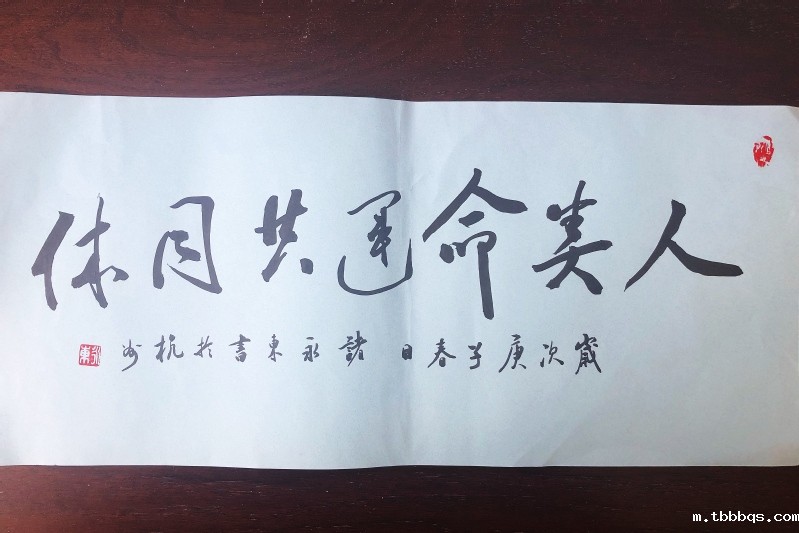 人类命运共同体
歲次庚子春日諸永東書於杭州
永東
m.tbbbqs.com